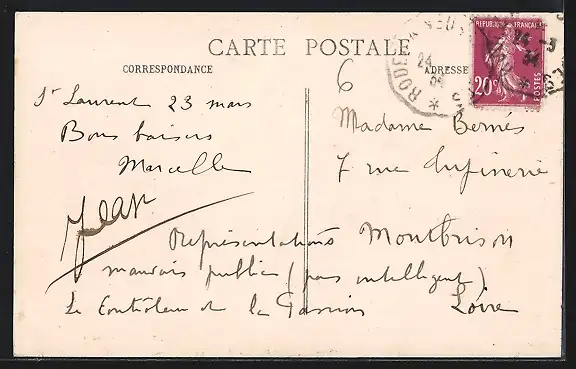 CARTE POSTALE
CORRESPONDANCE
ADRESSE
REPUBLIQUE FRANCAISE
20c
POSTES
RODE
24
St Laurent 23 mars
Bons baisers
Marcelle
Jean
6
Madame Bernés
7 rue
Montbrison
Loire
Représentations
mauvais public (pas intelligent)
Le Contrôleur de la